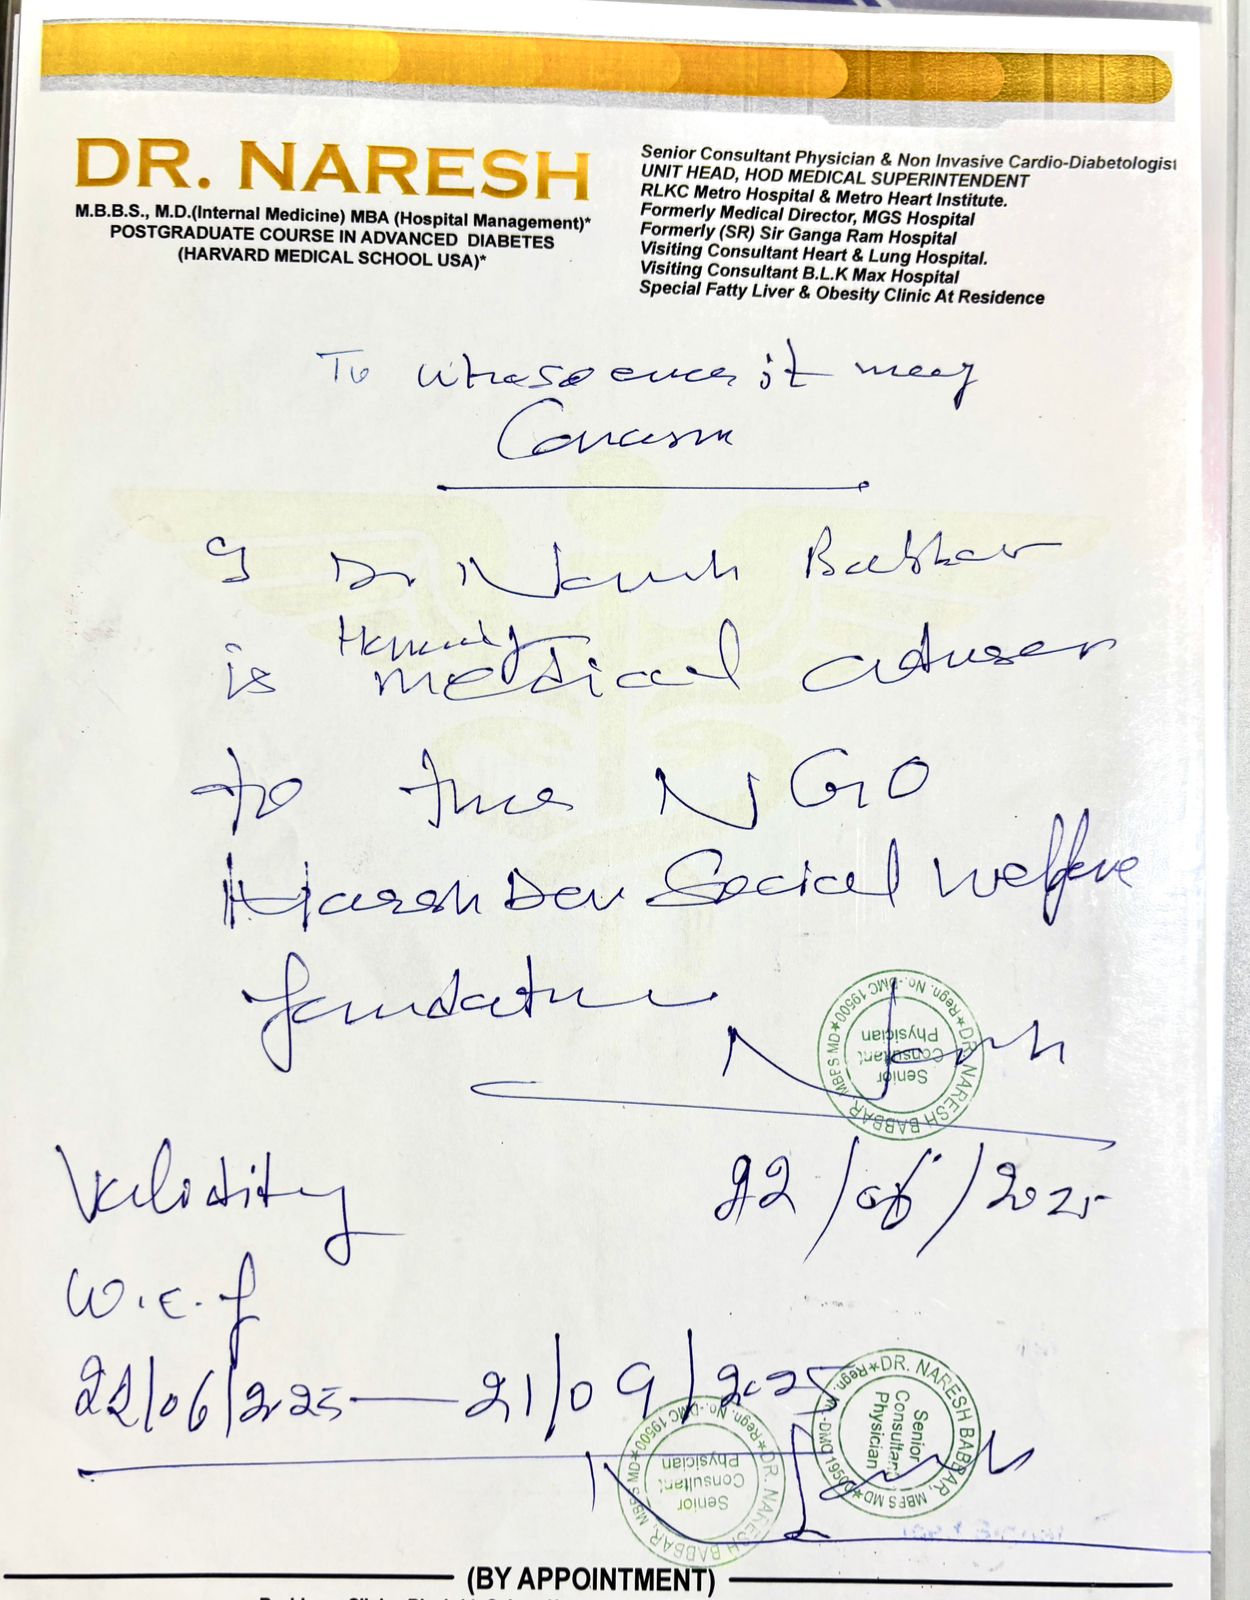 DR. NARESH
M.B.B.S., M.D.(Internal Medicine) MBA (Hospital Management)*
POSTGRADUATE COURSE IN ADVANCED DIABETES
(HARVARD MEDICAL SCHOOL USA)*
Senior Consultant Physician & Non Invasive Cardio-Diabetologist
UNIT HEAD, HOD MEDICAL SUPERINTENDENT
RLKC Metro Hospital & Metro Heart Institute.
Formerly Medical Director, MGS Hospital
Formerly (SR) Sir Ganga Ram Hospital
Visiting Consultant Heart & Lung Hospital.
Visiting Consultant B.L.K Max Hospital
Special Fatty Liver & Obesity Clinic At Residence
To whomsoever it may
Concern
I Dr Naresh Babbar
is medical adviser
to the NGO
Harsh Dev Social Welfare
foundation
Naresh
DR. NARESH BABBAR, MBBS MD★Regn. No.-DMC 19500★
Senior
Consultant
Physician
Validity
22/06/2025
w.e.f
22/06/2025 — 21/09/2025
DR. NARESH BABBAR, MBBS MD★Regn. No.-DMC 19500★
Senior
Consultant
Physician
DR. NARESH BABBAR, MBBS MD★Regn. No.-DMC 19500★
Senior
Consultant
Physician
Naresh
(BY APPOINTMENT)